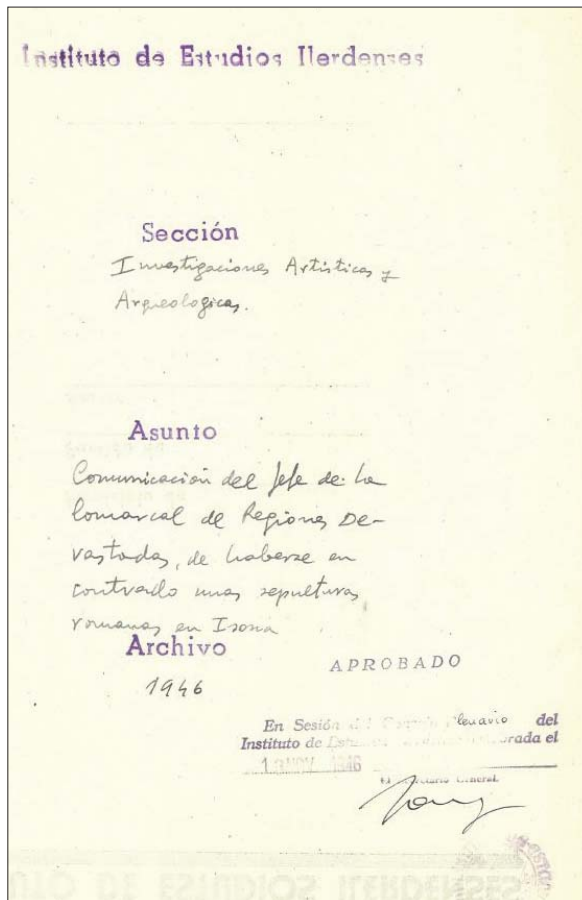 Instituto de Estudios Ilerdenses
Sección
Investigaciones Artísticas y
Arqueologicas.
Asunto
Comunicación del Jefe de la
Comarcal de Regiones De-
vastadas, de haberse en
contrado unas sepulturas
romanas en Isona
Archivo
1946
APROBADO
En Sesión del Plenario del
Instituto de el
NOV 1946
El Secretario General.
INSTITUTO DE ESTUDIOS ILERDENSES